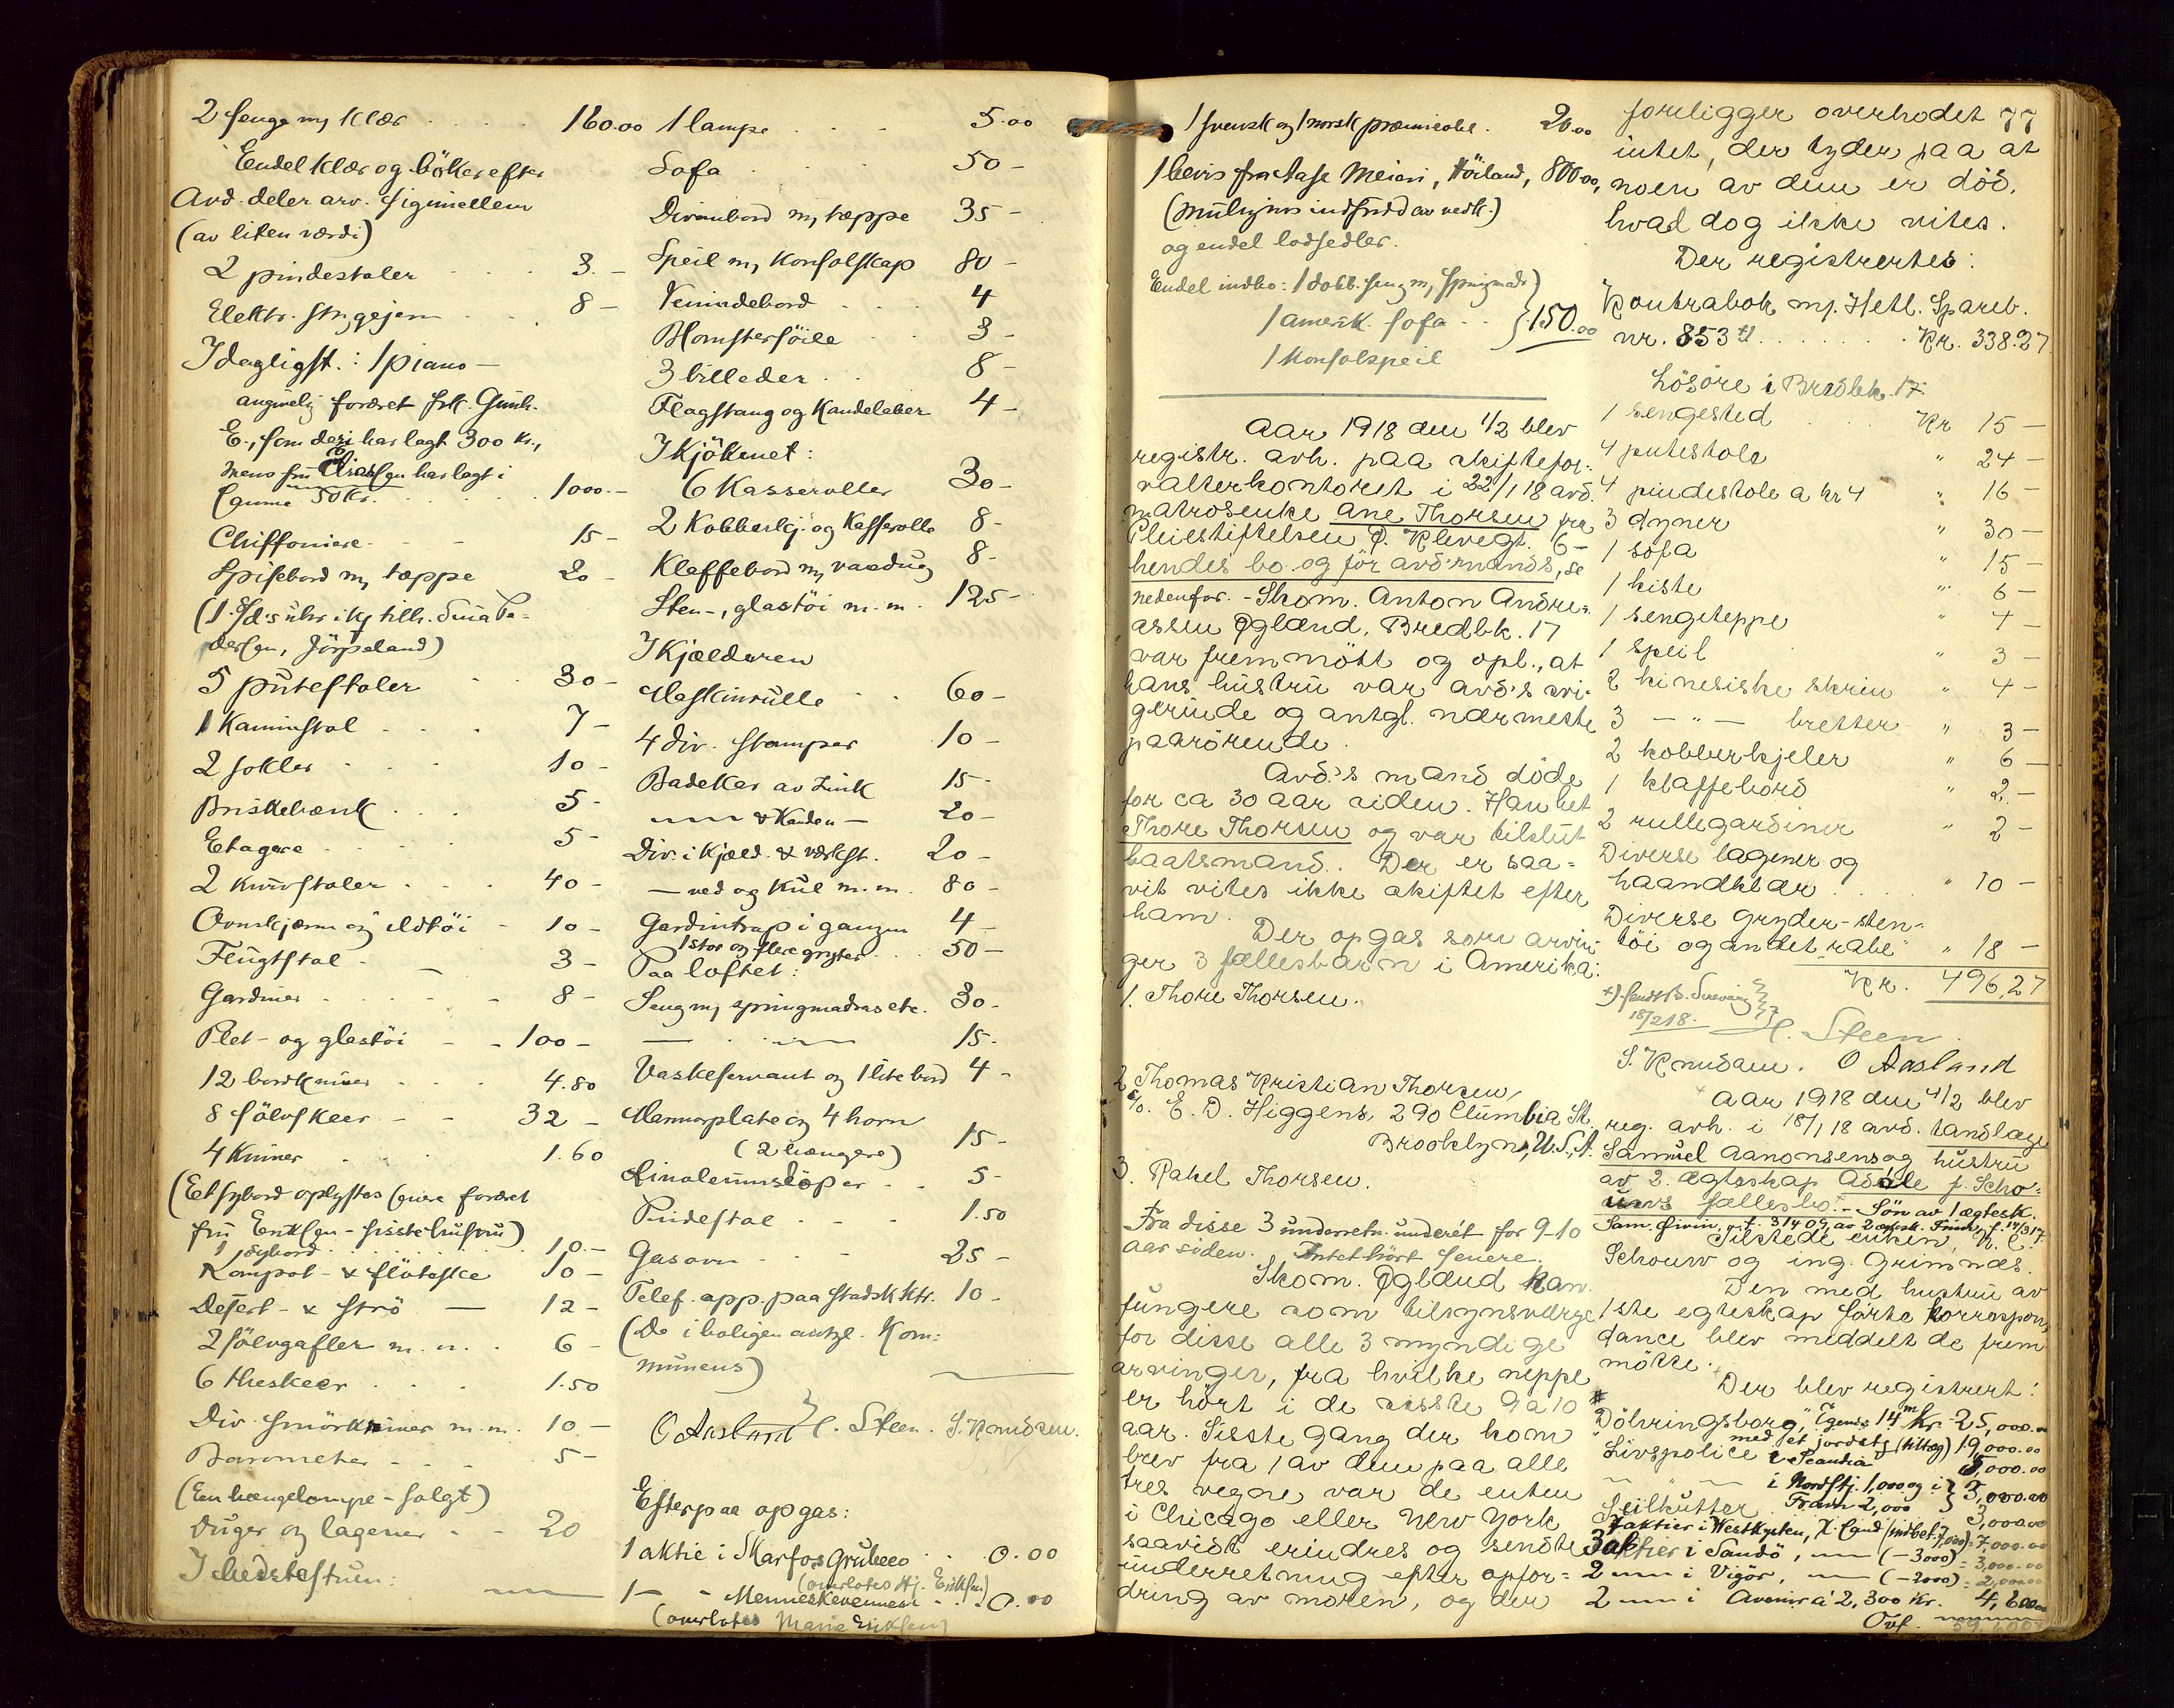 2 senge m/ klær . . . . 160.00
Endel klær og böker efter
Avd. deler arv. sigimellem
(av liten værdi)
2 pindestoler . . . 3.-
Elektr. strygejern . . 8-
I dagligst.: 1 piano -
angivelig foræret frk. Gunh.
E., som deri har lagt 300 Kr.,
mens fru har lagt i
samme 50 Kr. . . . . 1000.-
Chiffoniere . - - 15-
Spisebord m/ tæppe 20-
derſen, Jörpeland)
5 puteſtoler . . 30-
1 Kaminſtol . . . 7-
2 ſokler . . . 10-
Briskebænk . . . 5-
Etagere . . . . 5-
2 kurvſtoler . . . 40-
Ovnskjærm og ildtöi - 10-
Flugtſtol - - 3-
Gardiner . . . . - 8-
Plet- og glastöi - - 100-
12 bordkniver . . . 4.80
8 ſölvskeer - - - 32-
4 Kniver . . . 1.60
(Et sybord oplystes foræret
fru Erikſen - sidste huſtru)
1 sybord . . . . . . . 10.-
Kompot- & flöteske 10-
Desert- & strö — 12-
2 ſölvgafler m. m. . 6-
6 theskeer . . . 1.50
Div. smörkniver m.m. 10-
Barometer - - - 5-
(En hængelampe - solgt)
Duger og lagener . - 20
I bedsteſtuen:
1 lampe . . . 5.00
Sofa . . . 50-
Divanbord m/ tæppe 35-
Speil m/ Konsolskap 80-
Venindebord . . . 4
Blomstersöile . . 3-
3 billeder . . 8-
Flagstang og Kandelaber 4-
I Kjökenet:
6 Kasseroller 30-
2 Kobberkj. og Kasserolle 8-
Klaffebord m/ voxdug 8-
Sten-, glastöi m.m. . 125-
I Kjælderen
Maskinrulle . . 60-
4 div. Stamper . 10-
Badekar av Zink 15-
20-
Div. i Kjæld. & værkst. 20-
— ved og Kul m.m. 80-
Gardintrap i gangen 4-
1 stor og flere gryter . . 50-
Paa loftet:
Seng m/ springmadras etc. 30-
— . . — 15-
Vaskeservant og 1 lite bord 4-
Marmorplate og 4 horn
(2 hængere) 15-
Linoleumslöper . . 5-
Pindestol . - - 1.50
Gasovn - . - 25-
Telef. app. paa Stadsk ktr. 10-
(De i boligen antgl. Kom-
munens)
O Aasland C. Steen. S. Knudsen.
Efterpaa opgas:
1 aktie i Skarfos Grubeco . . 0.00
(overlates Hj. Eriksen)
1 — - Menneskevennen - . . 0.00
(overlates Marie Eriksen)
77
1 svensk og 1 norsk præmieobl. 20.00
1 bevis fra Aase Meieri, Höiland, 800.00,
(muligens indfridd av vedk.)
og endel lodsedler.
Endel indbo: 1 dobb. seng m/ springmadr
1 amerik. sofa . . } 150.00
1 Konsolspeil
Aar 1918 den 1/2 blev
registr. avh. paa skiftefor-
valterkontoret i 22/1 18 avd.
matrosenke Ane Thorsen fra
Pleiestiftelsen Ö. Klevegt. 6 -
hendes bo og för avd. mands, se
nedenfor. - Skom. Anton Andre-
assen Øgland, Bredbk. 17
var fremmött og opl., at
hans hustru var avd's svi-
gerinde og antgl. nærmeste
paarörende.
Avd.'s mand döde
for ca 30 aar siden. Han het
Thore Thorsen og var tilslut
baatsmand. Der er saa-
vit vites ikke skiftet efter
ham.
Der opgas som arvin-
ger 3 fællesbarn i Amerika:
1. Thore Thorsen.
2 Thomas Kristian Thorsen,
c/o. E. D. Higgens, 290 Clumbia St.
Brooklyn, U.S.A.
3. Rakel Thorsen.
Fra disse 3 underretn. underét for 9-10
aar siden. Intet hört senere.
Skom. Øgland kan
fungere som tilsynsværge
for disse alle 3 myndige
arvinger, fra hvilke neppe
er hört i de sisste 9 a 10
aar. Sisste gang der kom
brev fra 1 av dem paa alle
tres vegne var de enten
i Chicago eller New York
saavidt erindres og sendte
underretning efter opfor-
dring av moren, og der
foreligger overhodet
intet, der tyder paa at
noen av dem er död,
hvad dog ikke vites.
Der registrertes:
Kontrabok m/. Hetl. Spareb.
nr. 853 +) . . . . . . . Kr. 338.27
Lösöre i Bredbk. 17:
1 sengested . . . Kr 15-
4 putestole " 24-
4 pindestole a kr 4 " 16-
3 dyner " 30-
1 sofa " 15-
1 kiste " 6-
1 sengeteppe " 4-
1 speil " 3-
2 kinesiske skrin " 4-
3 — " — bretter " 3-
2 kobberkjeler " 6-
1 klaffebord " 2-
2 rullegardiner " 2-
Diverse lagener og
haandklær . . . . " 10-
Diverse gryder-sten-
töi og andet "rabe" " 18-
Kr. 496,27
18/2 18.
C. Steen
S. Knudsen. O Aasland
Aar 1918 den 4/2 blev
reg. avh. i 18/1 18 avd. tandlæge
Samuel Aanonsens og hustru
av 2. ægteskap Adéle f. Scho-
uws fællesbo. - Sön av 1 ægtesk.
Tilstede enken,
Schouw og ing. Grimnæs.
Den med hustru av
1ste egteskap förte korrespon-
dance blev meddelt de frem
mötte.
Der blev registrert:
"Döhringsborg," Egenes 14 Kr. 25,000.00
med et jordst. (tillæg) 19,000.00
Livspolice i Scandia 5,000.00
— " — i Nordstj. 1,000 og i } 3,000.00
Fram 2,000
Seilkutter . . . 3,000.00
7 aktier i Westkysten, (indbet. 7,000) = 7,000.00
3 aktier i Sandö, — (-3000) = 3,000.00
2 — i Vigör, — (-2000) = 2,000.00
2 — i Avenir á 2,300 Kr. 4,600.00
Ovf.